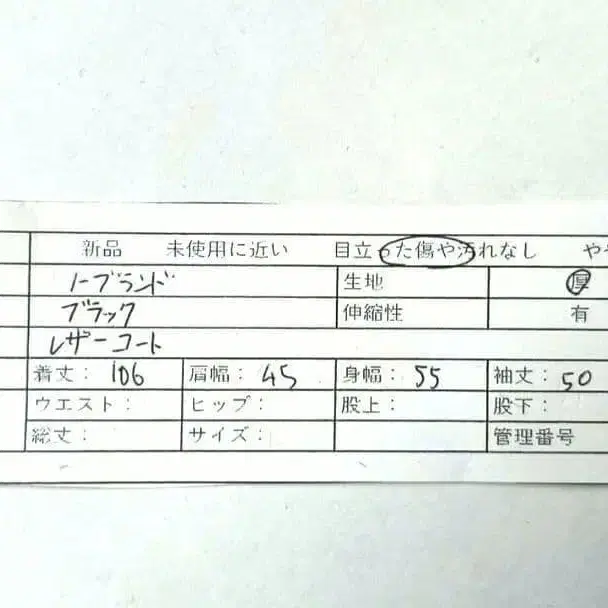 新品 未使用に近い 目立った傷や汚れなし やや
ノーブランド 生地 厚
ブラック 伸縮性 有
レザーコート
着丈: 106 肩幅: 45 身幅: 55 袖丈: 50
ウエスト: ヒップ: 股上: 股下:
総丈: サイズ: 管理番号